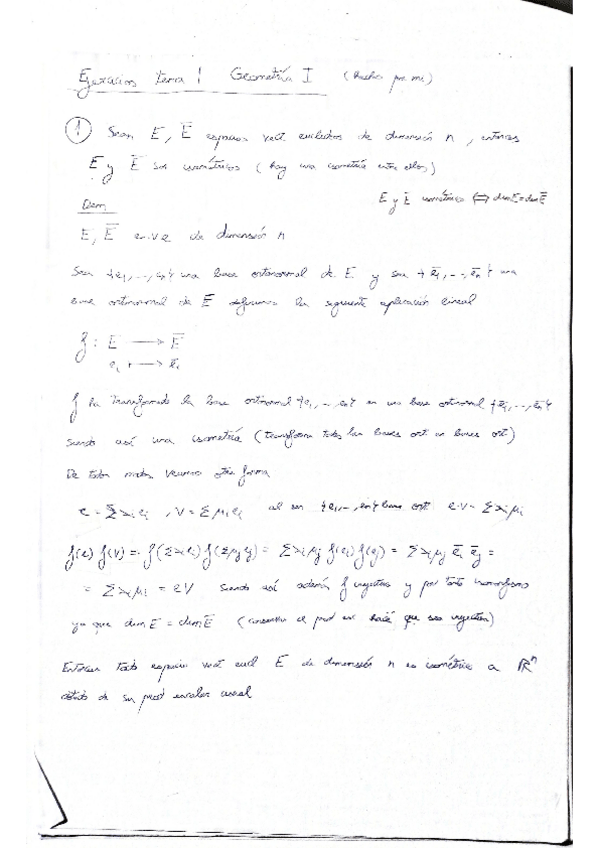 Ejercicios tema 1 Geometría I (hechos por mi)
① Sean E, E̅ espacios vect euclídeos de dimensión n, entonces
E y E̅ son isométricos (hay una isometría entre ellos)
E y E̅ isométricos ⇔ dim E = dim E̅
Dem
E, E̅ e.v.e de dimensión n
Sea {e₁,...,eₙ} una base ortonormal de E y sea {e̅₁,...,e̅ₙ} una
base ortonormal de E̅ definimos la siguiente aplicación lineal
f: E ⟶ E̅
eᵢ ⟼ e̅ᵢ
f ha transformado la base ortonormal {e₁,...,eₙ} en una base ortonormal {e̅₁,...,e̅ₙ}
siendo así una isometría (transforma todas las bases ort en bases ort)
De todos modos veamos otra forma
e = Σλᵢeᵢ, v = Σμᵢeᵢ al ser {e₁,...,eₙ} base ort. e·v = Σλᵢμᵢ
f(e) f(v) = f(Σλᵢeᵢ) f(Σμⱼeⱼ) = Σλᵢμⱼ f(eᵢ) f(eⱼ) = Σλᵢμⱼ e̅ᵢ e̅ⱼ =
= Σλᵢμᵢ = e v siendo así además f inyectiva y por tanto isomorfismo
ya que dim E = dim E̅ (conservar el prod esc hace que sea inyectiva)
Entonces todo espacio vect eucl E de dimensión n es isométrico a ℝⁿ
dotado de su prod escalar usual